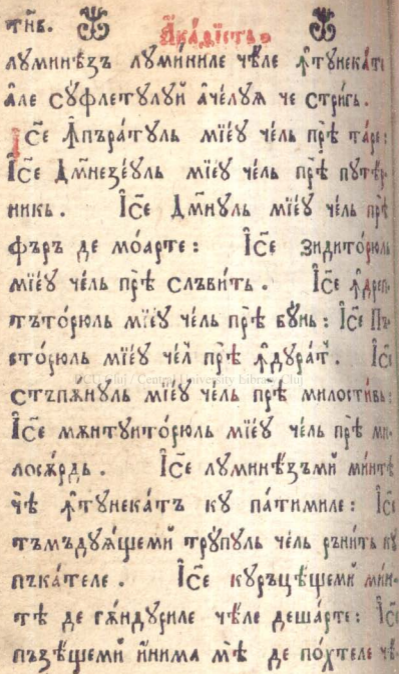 тив. Акаѳістъ
луминѣзъ луминиле чѣле ꙟтунекатє
а̀ле сꙋ́флетꙋлꙋй ачѣлꙋѧ че стригъ.
І҆с҃е ꙟпъратꙋль мїе́ꙋ че́ль прѣ̀ та́ре:
І҆с҃е Дм҃незе́ꙋль мїе́ꙋ че́ль прѣ̀ пꙋте́р
никь. І҆с҃е Дм҃нꙋль мїе́ꙋ чель прѣ
фъръ де мо́арте: І҆с҃е зидито́рюль
мїе́ꙋ че́ль прѣ̀ слъви́ть. І҆с҃е ꙟдреп
тъто́рюль мїе́ꙋ че́ль прѣ̀ бꙋ́нь: І҆с҃е Пъ
сто́рюль мїе́ꙋ че́л прѣ̀ ꙟдꙋра́т. І҆с҃е
стъпѫ́нꙋль мїе́ꙋ че́ль прѣ̀ милости́вь:
І҆с҃е мѫнтꙋито́рюль мїе́ꙋ че́ль прѣ̀ ми
лосѫ́рдь. І҆с҃е лꙋминѣ́зъмй ми́нтѣ
чѣ̀ ꙟтꙋнека́тъ кꙋ па́тимиле: І҆с҃е
тъмъдꙋѧ́щемй трꙋ́пꙋль че́ль ръни́ть кꙋ
пъка́теле. І҆с҃е кꙋръцѣ́щемй ми́н
тѣ̀ де гѫ́ндꙋриле чѣ́ле деша́рте: І҆с҃е
пъзѣ́щемй и́нима мѣ̀ де по́хтеле чѣ
BCU Cluj / Central University Library Cluj